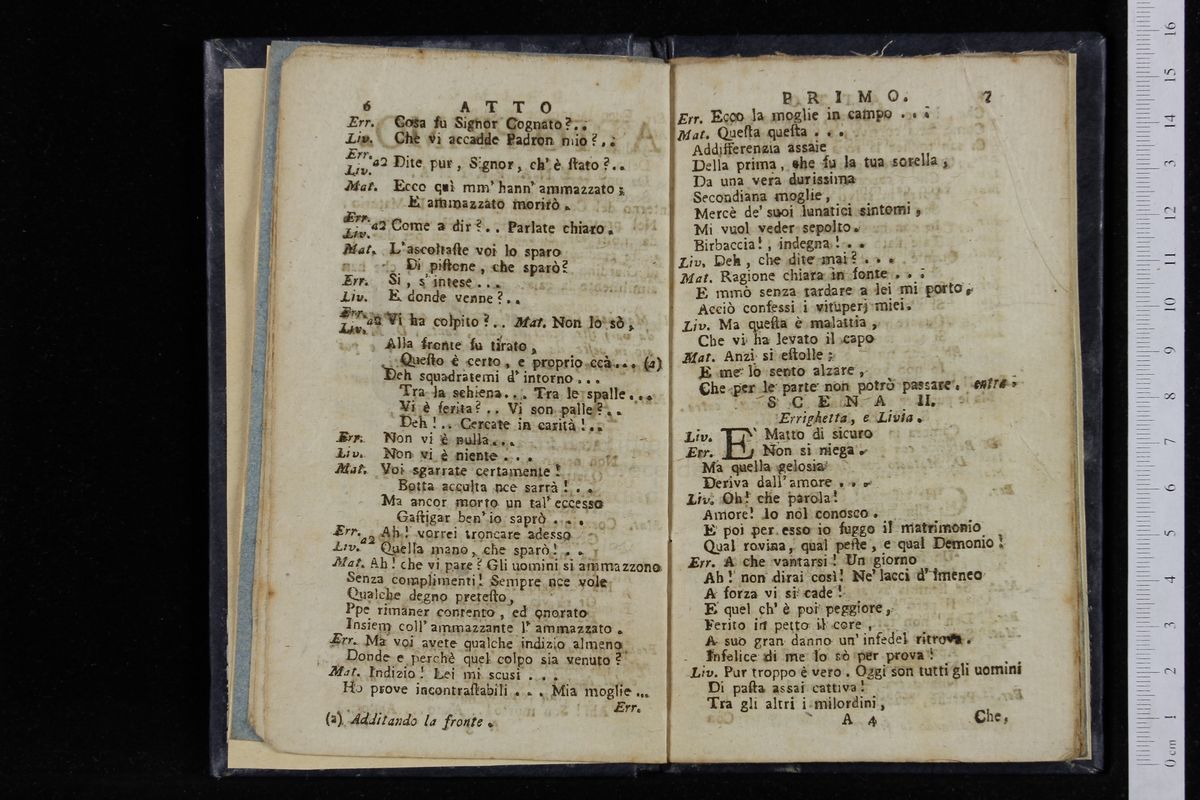 6 ATTO
Err. Cosa fu Signor Cognato?..
Liv. Che vi accadde Padron mio?..
Err. Liv. a2 Dite pur, Signor, ch' è ſtato?..
Mat. Ecco quì mm' hann' ammazzato;
E ammazzato morirò.
Err. Liv. a2 Come a dir?.. Parlate chiaro.
Mat. L'aſcoltaſte voi lo sparo
Di piſtone, che sparò?
Err. Si, s' intese...
Liv. E donde venne?..
Err. Liv. a2 Vi ha colpito?.. Mat. Non lo sò,
Alla fronte fu tirato,
Queſto è certo, e proprio ccà... (a)
Deh squadratemi d' intorno...
Tra la schiena... Tra le spalle...
Vi è ferita?.. Vi son palle?..
Deh!.. Cercate in carità!..
Err. Non vi è nulla...
Liv. Non vi è niente...
Mat. Voi sgarrate certamente!
Botta acculta nce sarrà!..
Ma ancor morto un tal' eccesso
Gaſtigar ben' io saprò...
Err. Liv. a2 Ah! vorrei troncare adesso
Quella mano, che sparò!..
Mat. Ah! che vi pare? Gli uomini si ammazzono
Senza complimenti! Sempre nce vole
Qualche degno preteſto,
Ppe rimaner contento, ed onorato
Insiem coll' ammazzante l' ammazzato.
Err. Ma voi avete qualche indizio almeno
Donde e perchè quel colpo sia venuto?
Mat. Indizio! Lei mi scusi...
Ho prove incontraſtabili... Mia moglie...
Err.
(a) Additando la fronte.
PRIMO. 7
Err. Ecco la moglie in campo...
Mat. Queſta queſta...
Addifferenzia assaie
Della prima, che fu la tua sorella,
Da una vera durissima
Secondiana moglie,
Mercè de' suoi lunatici sintomi,
Mi vuol veder sepolto.
Birbaccia!, indegna!..
Liv. Deh, che dite mai?...
Mat. Ragione chiara in fonte...
E mmò senza tardare a lei mi porto,
Acciò confessi i vituperj miei.
Liv. Ma queſta è malattia,
Che vi ha levato il capo
Mat. Anzi si eſtolle;
E me lo sento alzare,
Che per le parte non potrò passare. entra.
SCENA II.
Errighetta, e Livia.
Liv. E' Matto di sicuro
Err. Non si niega.
Ma quella gelosia
Deriva dall' amore...
Liv. Oh! che parola!
Amore! Io nol conosco.
E poi per esso io fuggo il matrimonio
Qual rovina, qual peſte, e qual Demonio!
Err. A che vantarsi! Un giorno
Ah! non dirai così! Ne' lacci d' Imeneo
A forza vi si cade!
E quel ch' è poi peggiore,
Ferito in petto il core,
A suo gran danno un' infedel ritrova.
Infelice di me lo sò per prova!
Liv. Pur troppo è vero. Oggi son tutti gli uomini
Di paſta assai cattiva!
Tra gli altri i milordini,
A 4 Che,
0 cm 1 2 3 4 5 6 7 8 9 10 11 12 13 14 15 16